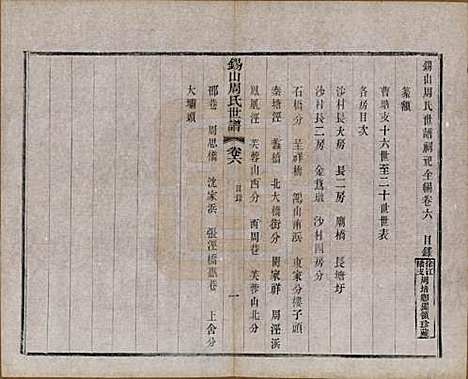 錫山周氏世譜祠祀全編卷六 目錄
篆額
曹塘支十六世至二十世世表
各房目次
沙村長大房 長二房 廟橋 長塘圩
沙村長三房 金墩 沙村四房分
石橋分 呈祥橋 鴻山南浜 東家分樓子頭
秦塘涇 北大橋街分 周家祥 周涇浜
鳳凰涇 芙蓉山西分 西周巷 芙蓉山北分
邵巷 周思橋 沈家浜 張涇橋蕙巷 上舍分
大壩頭
錫山周氏世譜 卷六 目錄 一